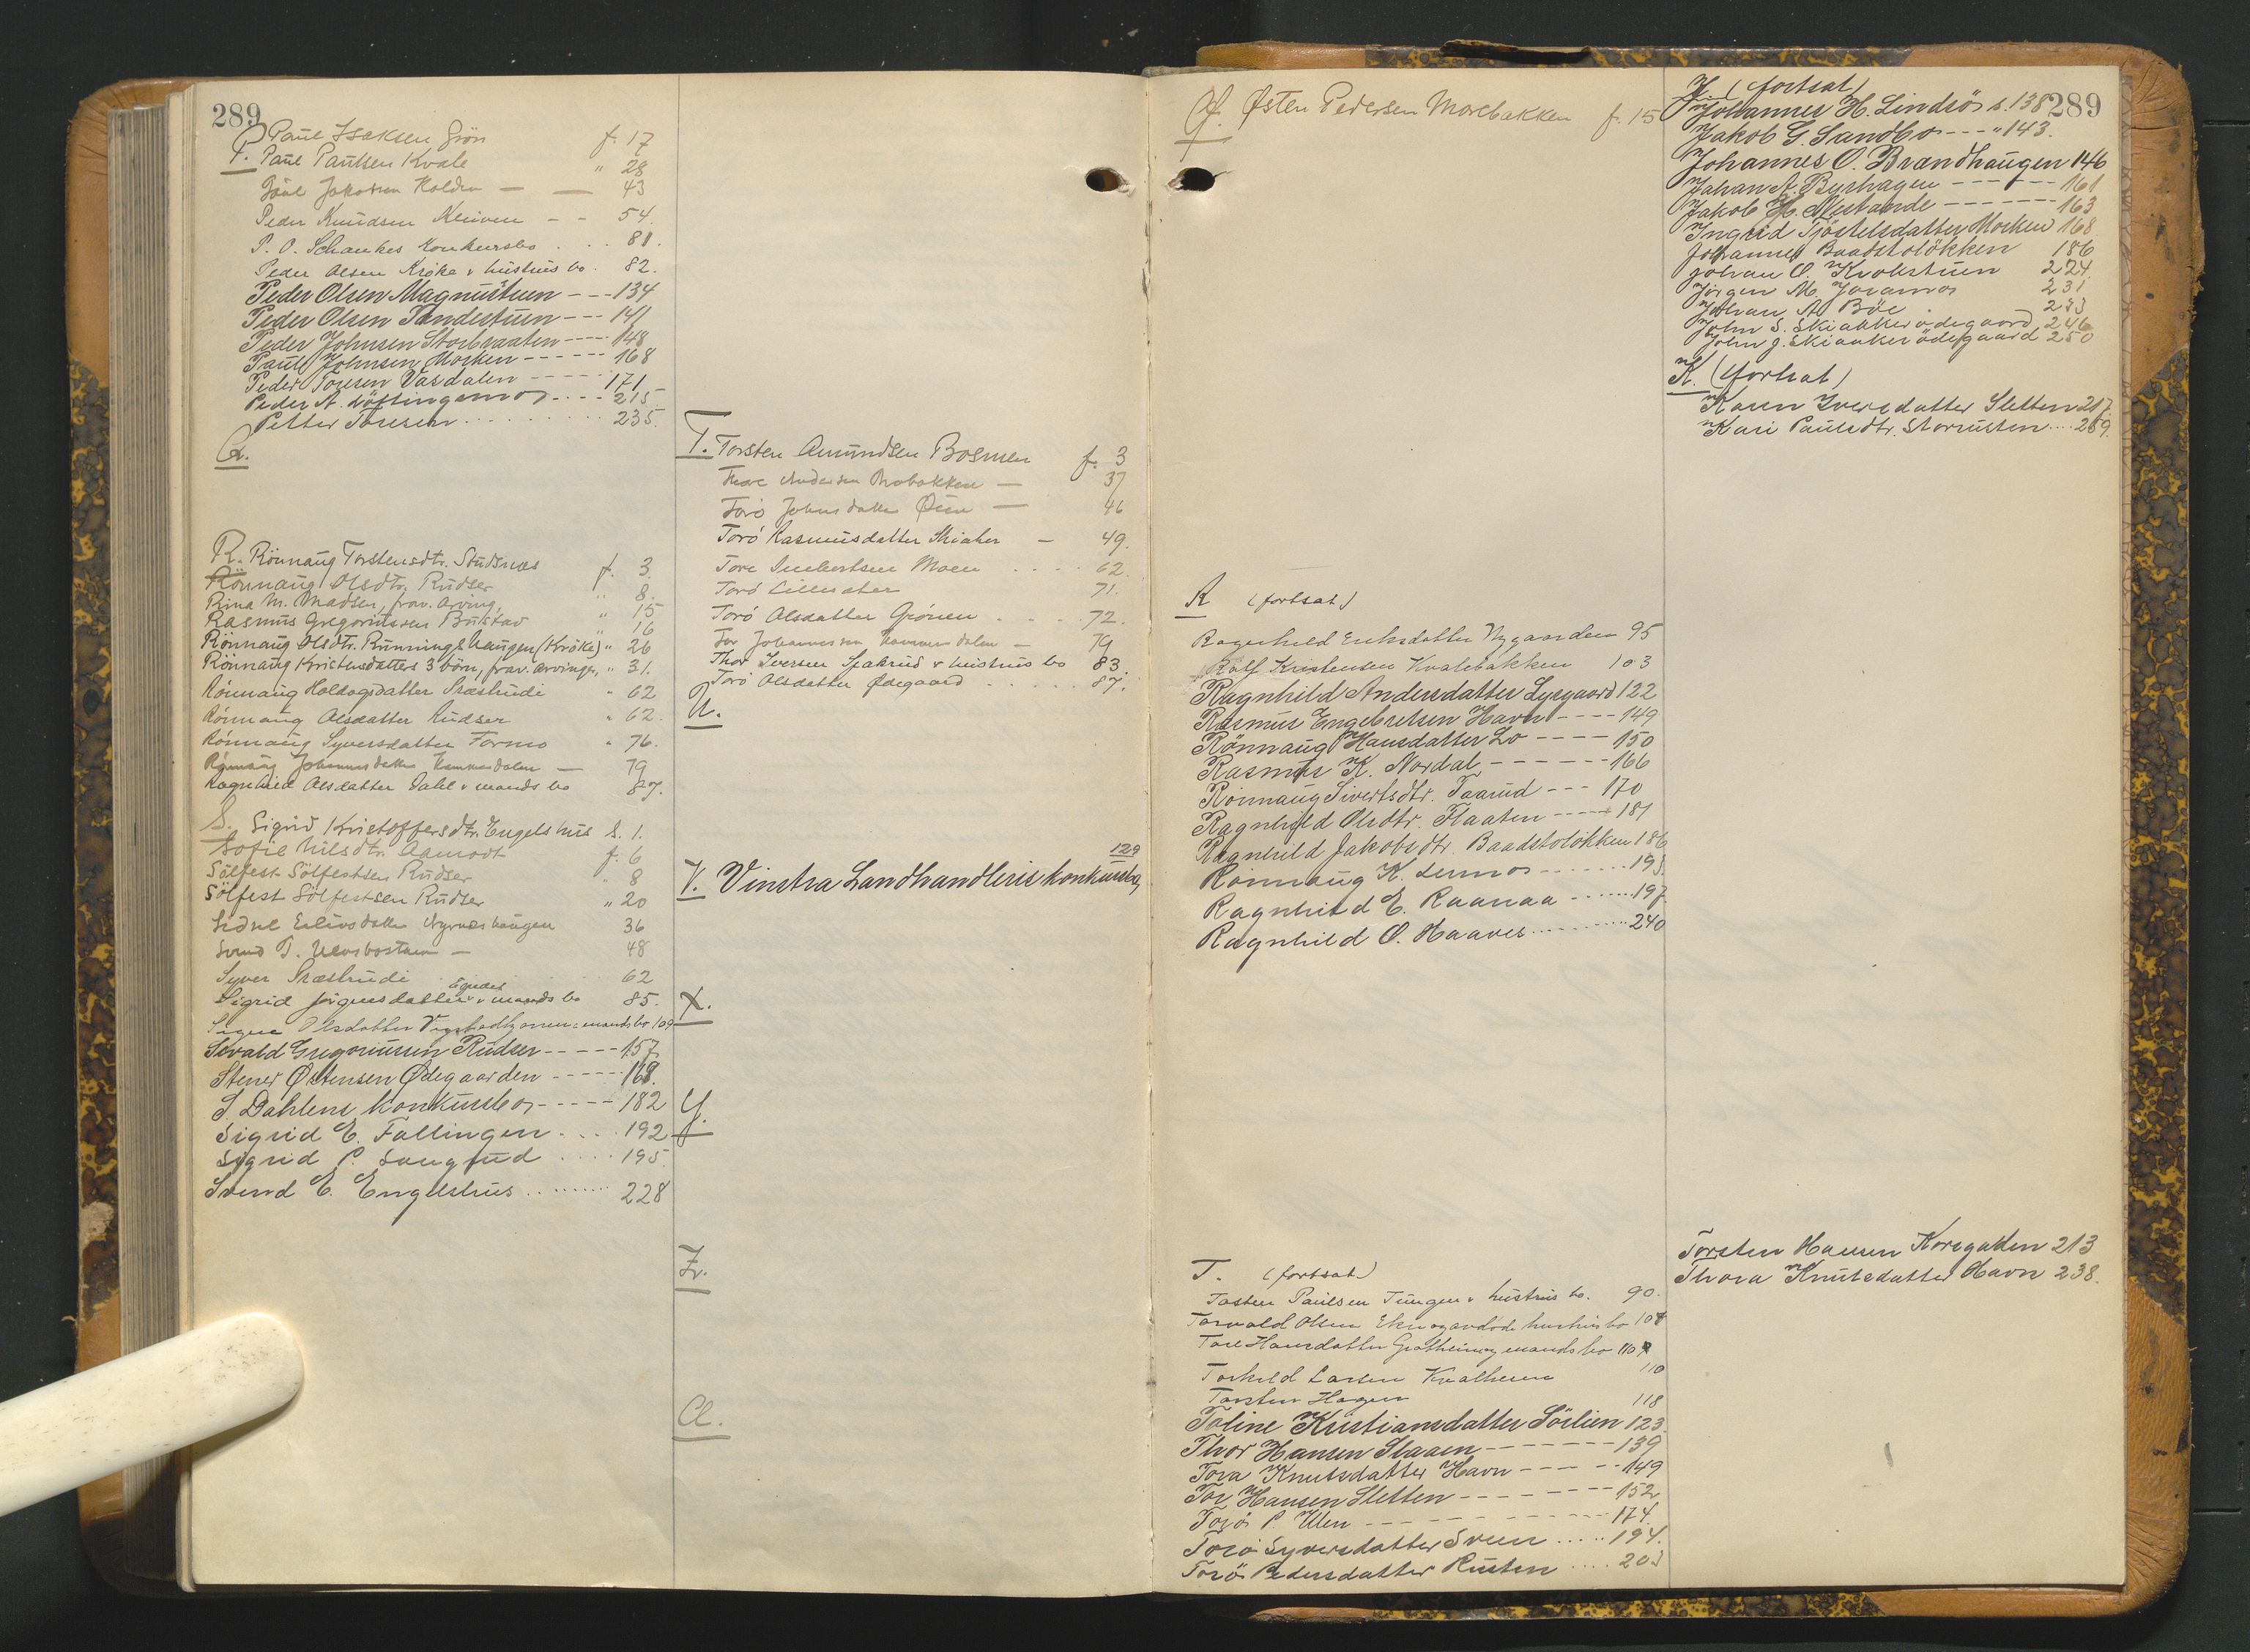 289
P. Paul Isaksen Grön f. 17
Paul Paulsen Kvale " 28
Paul Jakobsen Kolden — — 43
Peder Knudsen Kleiven - - 54.
P. O. Schankes Konkursbo . . . 81.
Peder Olsen Kröke & hustrus bo . 82.
Peder Olsen Magnustuen - - - 134
Peder Olsen Sandestuen - - - 141
Peder Johnsen Storbraaten - - - 148
Paul Johnsen Morken - - - - - - 168
Peder Toresen Vasdalen - - - - - 171
Peder A. Löftingsmo - - - 215.
Petter Toresen . . . . . . . . . 235.
Q.
R. Rönnaug Torstensdtr. Studsnæs f. 3.
Rönnaug Olsdtr. Rudser " 8.
Rina M. Madsen, frav. arving, " 15
Rasmus Gregoriussen Bukstad " 16
Rönnaug Olsdtr. Runningshaugen (Kröke) " 26
Rönnaug Kristensdatters 3 börn, frav. arvinger, " 31.
Rönnaug Holdagsdatter Præstrudi " 62
Rönnaug Olsdatter Rudser " 62.
Rönnaug Syversdatter Formo " 76.
Rönnaug Johannesdatter Hammerdalen — 79
Ragnhild Olsdatter Dahl & mands bo 87.
S. Sigrid Kristoffersdtr. Engelshus S. 1.
Sofie Nilsdtr. Aamodt f. 6
Sölfest Sölfestsen Rudser " 8
Sölfest Sölfestsen Rudser " 20
Sidsel Eilivsdatter Nyrnæshaugen 36
Svend T. Ulvsbostuen — 48
Syver Præstrudi 62
Sigrid Jörgensdatter & mands bo 85.
Signe Olsdatter & mands bo 109
Sevald Gregoriussen Rudser - - - - - 157
Stener Østensen Ødegaarden - - - - - 168.
S. Dahlens konkursbo - - - - - 182
Sigrid E. Fallingen . . . . 192
Sigrid P. Sougstud . . . . 195.
Svend E. Engelshus . . . . . . . . 228
T. Torsten Amundsen Bosmen f. 3
Thore Andersen Mobakken — 37
Torö Johnsdatter Øien — 46
Torö Rasmusdatter Skiaker — 49.
Tore Engebertsen Moen . . . . 62.
Torö Lillesæter 71.
Torö Olsdatter Grönen . . . . 72.
Tor Johannessen Hammerdalen — 79
Thor Iversen Sjaarud & hustrus bo 83.
Torö Olsdatter Ødegaard . . . . . . 87.
U.
129
V. Vinstra Landhandleris konkursbo,
X.
Y.
Z.
Æ.
Ø. Østen Pedersen Morebakken f. 15
R (fortsat)
Ragnhild Eriksdatter Nygaarden 95
Rolf Kristensen Kvalebakken 103
Ragnhild Andersdatter Lysgaard 122
Rasmus Engebretsen Havn - - - - 149
Rönnaug Hansdatter Lo - - - - 150
Rasmus K. Nordal - - - - - - 166
Rönnaug Sivertsdtr. Taarud - - - 170
Ragnhild Olsdtr. Flaaten - - - - 181
Ragnhild Jakobsdtr. Baadstolökken 186
Rönnaug K. Lermo . . . . . . . 193.
Ragnhild E. Raanaa . . . . . . 197.
Ragnhild O. Haaves . . . . . . . . . 240
T. (fortsat)
Torsten Paulsen Tungen & hustrus bo. 90.
Torvald Olsen Eken og avdöde hustrus bo 108
Tore Hansdatter Grotheim og mands bo 109
Torkild Larsen Kvalheim 110
Torsten Hagen 118
Toline Kristiansdatter Sörlien 123.
Thor Hansen Staaen - - - - - - - 139
Tora Knutsdatter Havn - - - - - 149
Tor Hansen Sletten - - - - - - - - 152
Torö P. Ulen - - - - - - - - - 174.
Torö Syversdatter Sveen . . . . . 194.
Torö Pedersdatter Rusten . . . . 203
289
J. (fortsat)
Johannes H. Lindsö s. 138
Jakob G. Sandbo - - - " 143.
Johannes O. Brandhaugen 146
Johan A. Byrhagen - - - - - - 161
Jakob H. Nustande - - - - - - - 163
Ingrid Tjöstelsdatter Morken 168
Johannes Baadstolökken 186
Johan O. Krokstuen 224.
Jörgen M. Joramo 231
Johan A. Böe . 233
John S. Skiaaker ödegaard 246
John J. Skiaaker ödegaard 250
K. (fortsat)
Karen Iversdatter Sletten 217.
Kari Paulsdtr. Storrusten . . . . 259.
Torsten Hansen Korsgalden 213
Thora Knutsdatter Havn 238.